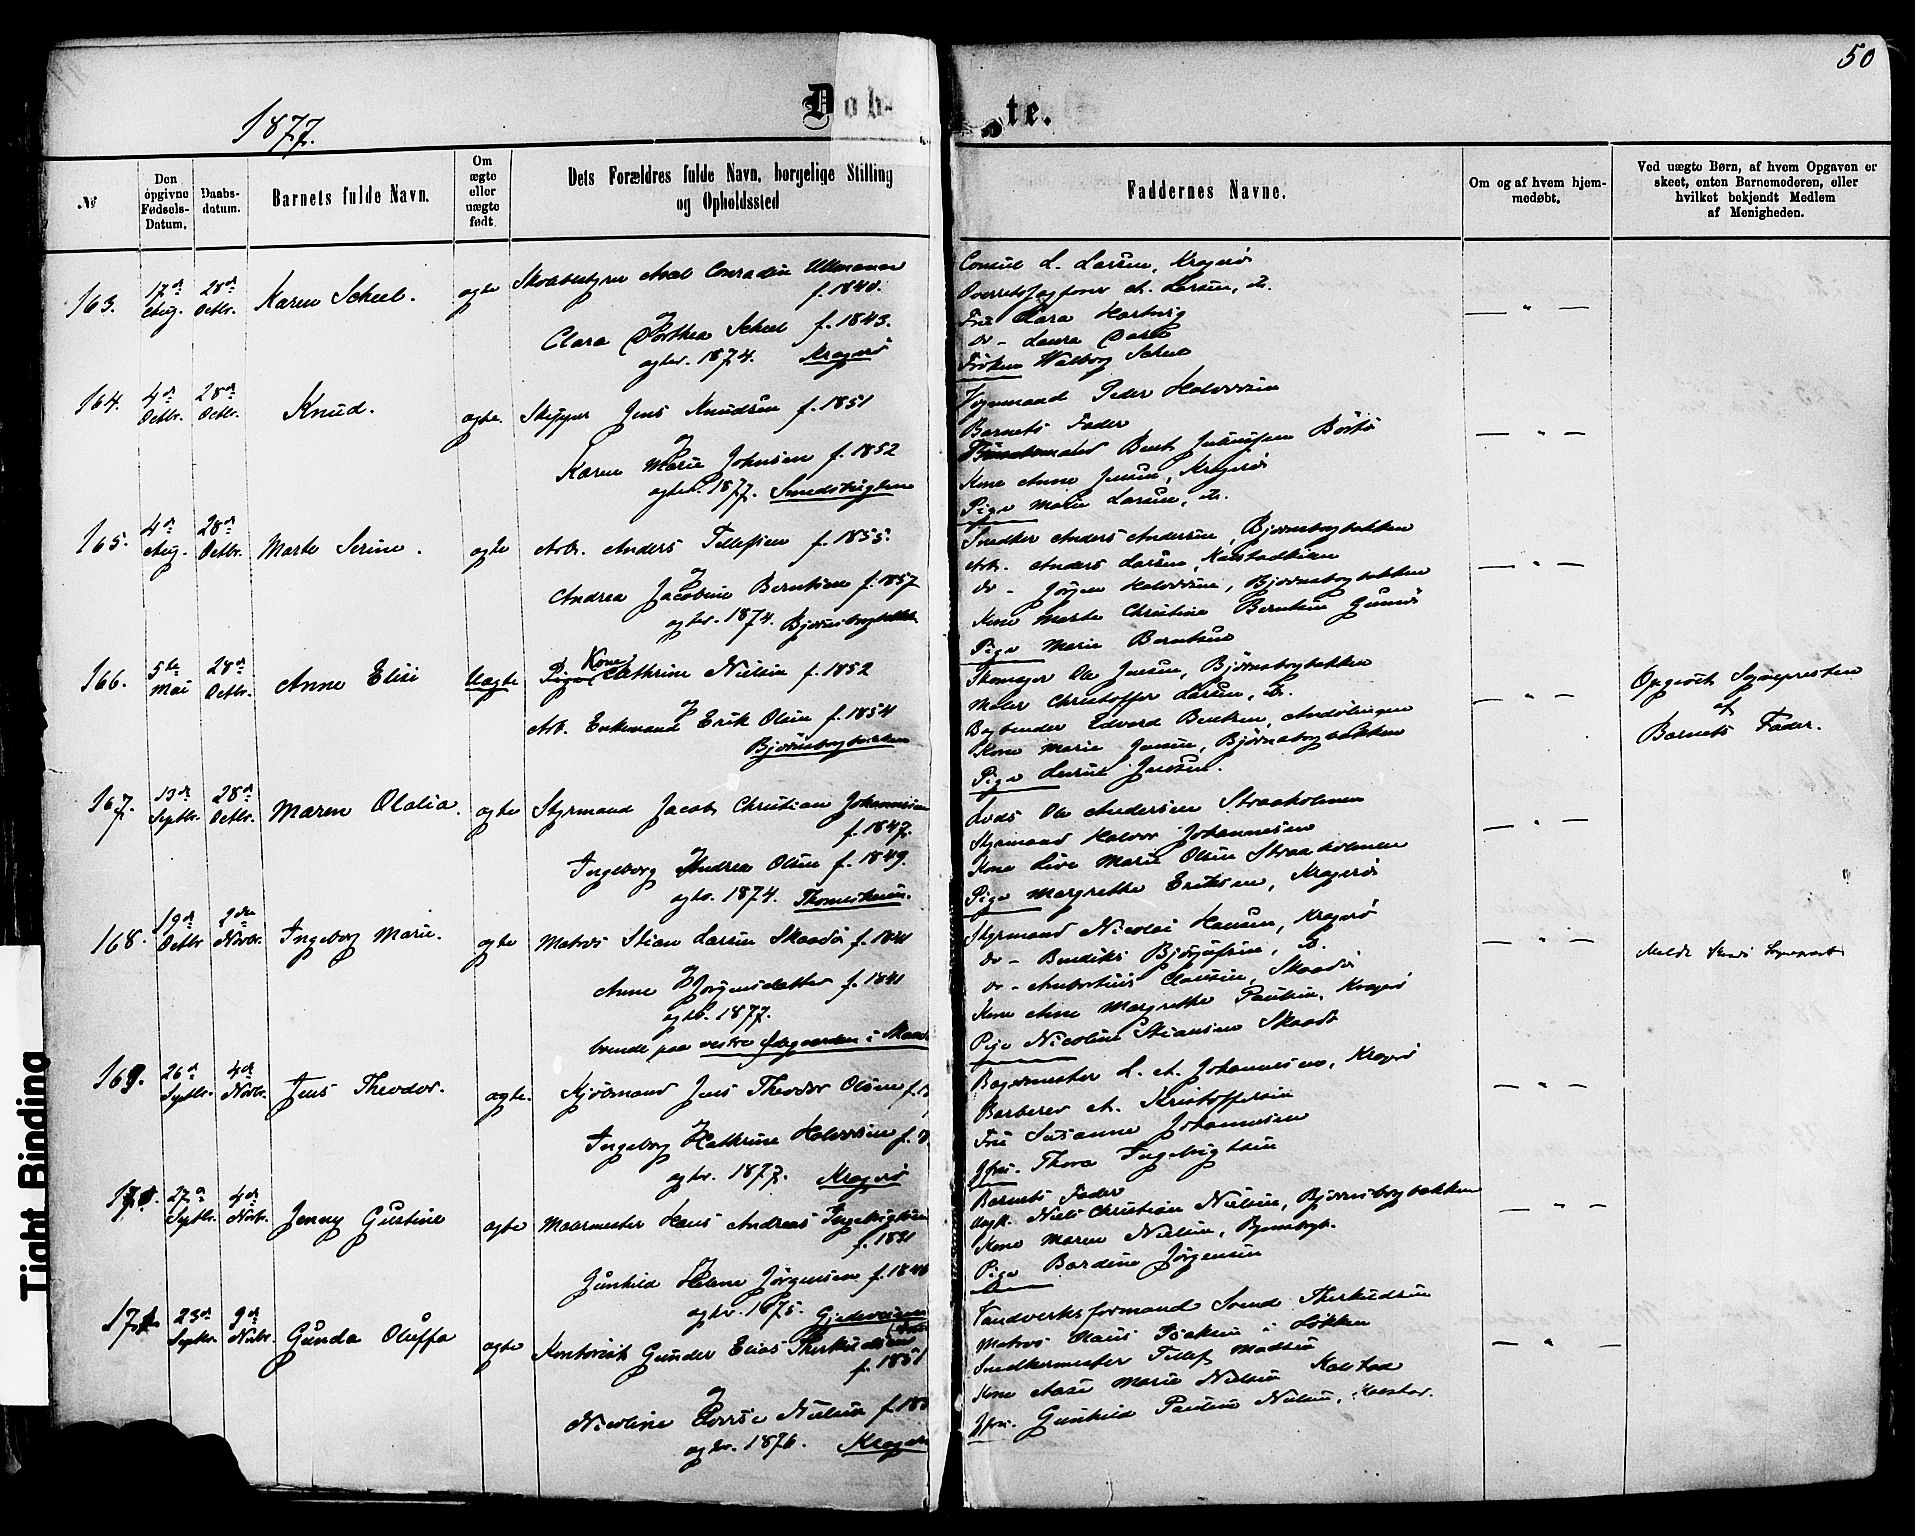 50
1877.
Døbte.
№
Den opgivne Fødsels-Datum.
Daabs-datum.
Barnets fulde Navn.
Om ægte eller uægte født
Dets Forældres fulde Navn, borgelige Stilling og Opholdssted
Faddernes Navne.
Om og af hvem hjem-medøbt.
Ved uægte Børn, af hvem Opgaven er skeet, enten Barnemoderen, eller hvilket bekjendt Medlem af Menigheden.
163. 17d Aug. 28d Octbr. Karen Scheel. ægte
Skolebestyrer Axel Conradin Ullmann
f. 1840.
og
Clara Dorthea Scheel f. 1843.
ægtev. 1874. Kragerø
Consul L. Larsen, Kragerø
Overretssagfører A. Larsen, do.
Fru Clara Hartvig
do - Laura Dahl
Frøken Walborg Scheel
— " —
164. 4d Octbr. 28d Octbr. Knud. ægte.
Skipper Jens Knudsen f. 1851
og
Karen Marie Johnsen f. 1852
ægtev. 1877. Smedsbugten
Vognmand Peder Halvorsen
Barnets Fader
Bent Børtø
Kone Anne Jensen, Kragerø
Pige Marie Larsen, do.
— " —
165. 4d Aug. 28d Octbr. Marte Serine. ægte
Arb. Anders Tellefsen f. 1855.
og
Andrea Jacobine Berntsen f. 1857
ægtev. 1874. Bjørnsborgbakken
Snedker Anders Andersen, Bjørnsborgbakken
Arb. Anders Larsen, Kalstadkilen
do - Jørgen Halvorsen, Bjørnsborgbakken
Kone Marte Christine Berntsen Gumø
Pige Marie Berntsen
— " —
166. 5te Mai 28d Octbr. Anne Elise Uægte
Pige Kone Cathrine Nielsen f. 1852
og
Arb. Enkemand Erik Olsen f. 1854
Bjørnsborgbakken
Ole Jensen, Bjørnsborgbakken
Maler Christoffer Larsen, do.
Bogbinder Edvard Bentzen,
Kone Marie Jensen, Bjørnsborgbakken
Pige Lusine Jensen.
— " —
Opgivet Sognepresten
af
Barnets Fader.
167. 13d Septbr. 28d Octbr. Maren Olalia. ægte
Styrmand Jacob Christian Johannesen
f. 1847.
og
Ingeborg Andrea Olsen f. 1849.
ægtev. 1874. Thomesheien.
Lods Ole Andersen Straaholmen
Styrmand Halvor Johannesen
Kone Live Marie Olsen Straaholmen
Pige Margrethe Eriksen, Kragerø
— " —
168. 19d Octbr 2den Novbr. Ingeborg Marie. ægte
Matros Stian Larsen Skaadø f. 1841
og
Anne Jørgensdatter f. 1841
ægtev. 1877.
boende paa vestre Ødegaarden i Skaadø
Styrmand Nicolai Hansen, Kragerø
do - Bendiks Bjørgufsen, do.
do - Clausen, Skaadø
Kone Anne Margrethe Paulsen, Kragerø
Pige Nicoline Stiansen Skaadø
— " —
169. 26d Septbr. 4d Novbr. Jens Theodor. ægte.
Kjøbmand Jens Theodor Olsen f.
og
Ingeborg Kathrine Halvorsen f.
ægtev. 1877. Kragerø
Bagermester L. A. Johannesen, Kragerø
Barberer A. Kristoffersen
Fru Susanne Johannesen
Jfru. Thora Ingebrigtsen
— " —
170. 27d Septbr. 4d Novbr. Jenny Gustine ægte
Malermester Hans Andreas Ingebrigtsen
f. 1831
og
Gunhild Helene Jørgensen f. 1846
ægtev. 1875. Gjedeveien
Barnets Fader
Ungk. Niels Christian Nielsen, Bjørnsborgbakken
Kone Maren Nielsen, Bjørnsborgb.
Pige Bardine Jørgensen
— " —
171 23d Septbr. 9d Novbr. Gunda Oluffa ægte
Kontorist Gunder Elias Therkildsen
f. 1851
og
Nicoline Nielsen f. 185
ægtev. 1876. Kragerø
Tandverksformand Svend Therkildsen
Matros Claus Isaksen i Løkken
Snedkermester Tellef Madsen
Kone Aase Marie Nielsen Kalstad
Jfru. Gunhild Pauline Nielsen, Kalstad.
— " —
Tight Binding